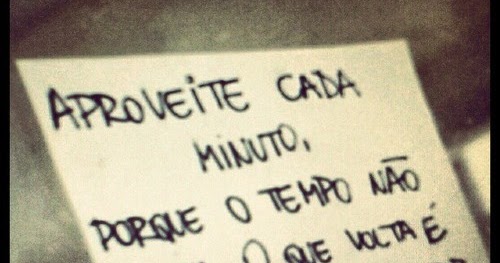 APROVEITE CADA
MINUTO,
PORQUE O TEMPO NÃO
O QUE VOLTA É